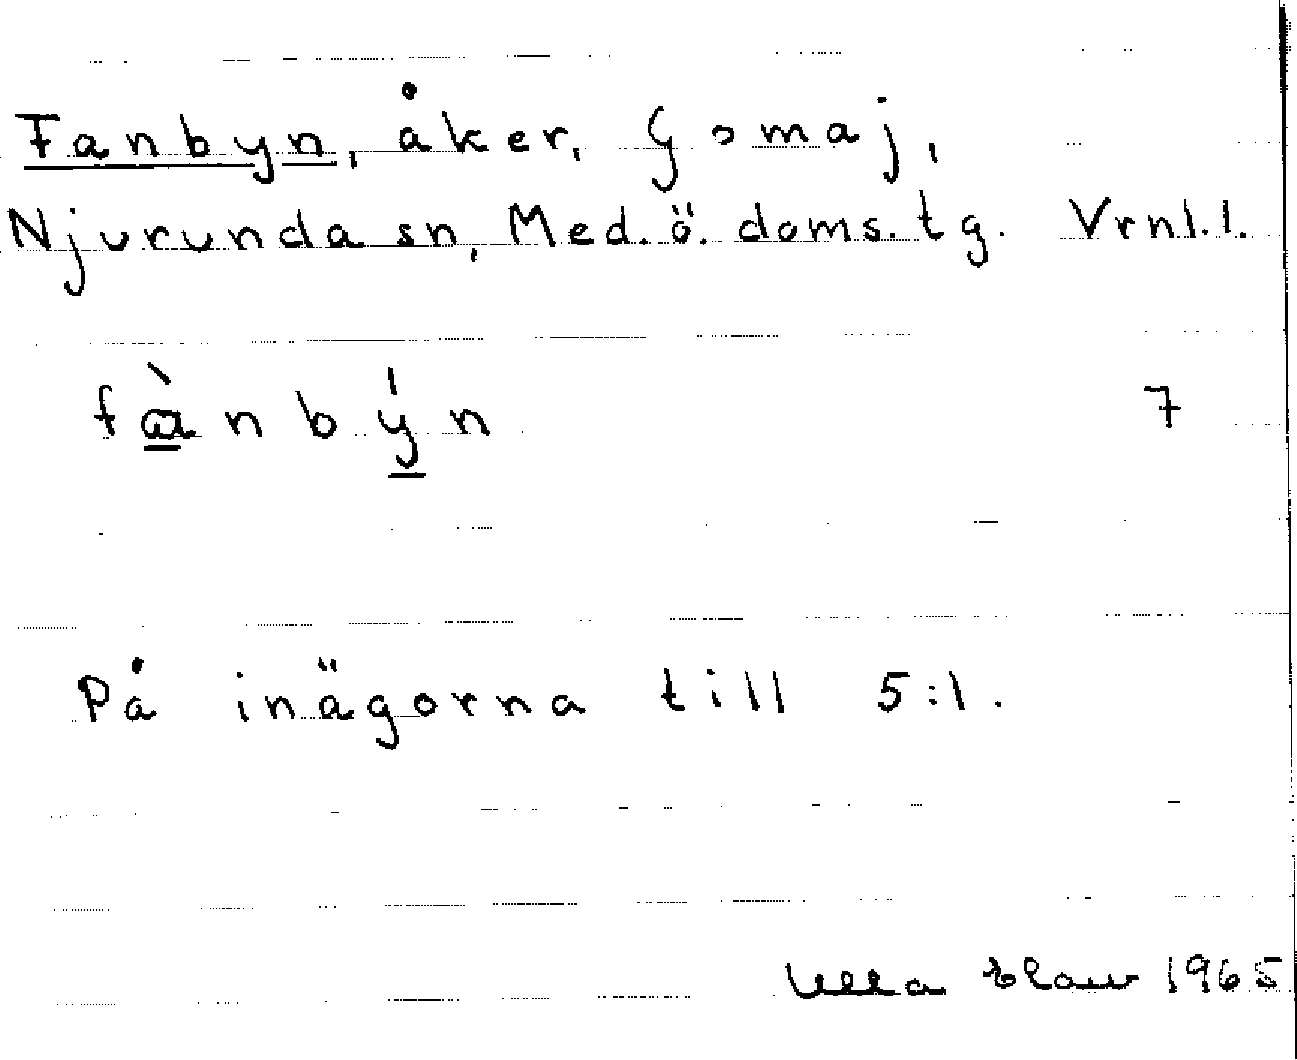 Fanbyn, åker, Gomaj,
Njurunda sn, Med. ö. doms. tg. Vrnl. l.
fànbýn 7
På inägorna till 5:1.
Ulla 1965